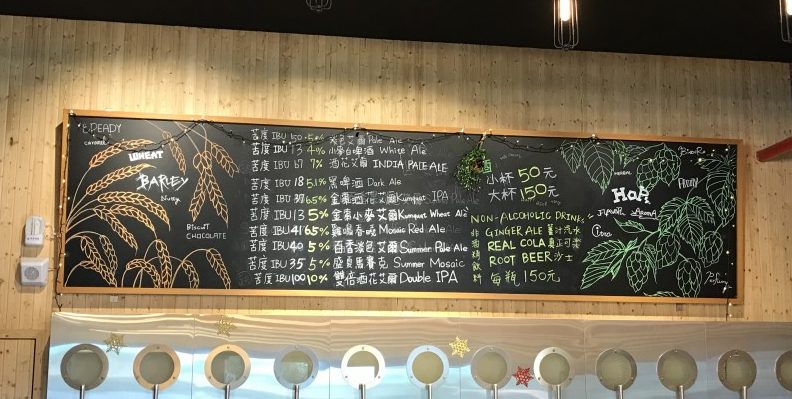 READY
CARAMEL
WHEAT
BARLEY
Nutty
BISCUIT
CHOCOLATE
苦度 IBU 50 5% 淡色艾爾 Pale Ale
苦度 IBU 13 4% 小麥白啤酒 White Ale
苦度 IBU 67 7% 酒花艾爾 INDIA PALE ALE
苦度 IBU 18 5.1% 黑啤酒 Dark Ale
苦度 IBU 37 6.5% 金棗酒花艾爾 Kumquat IPA
苦度 IBU 13 5% 金棗小麥艾爾 Kumquat Wheat Ale
苦度 IBU 41 6.5% Mosaic Red Ale
苦度 IBU 40 5% 百香淡色艾爾 Summer Pale Ale
苦度 IBU 35 5% 盛夏馬賽克 Summer Mosaic
苦度 IBU 100 10% 雙倍酒花艾爾 Double IPA
小杯 50元
大杯 150元
非酒精飲料
NON-ALCOHOLIC DRINKS
GINGER ALE 薑汁汽水
REAL COLA 真正可樂
ROOT BEER 沙士
每瓶 150元
HERBAL
HOP
FRUITY
AROMA
Citrus